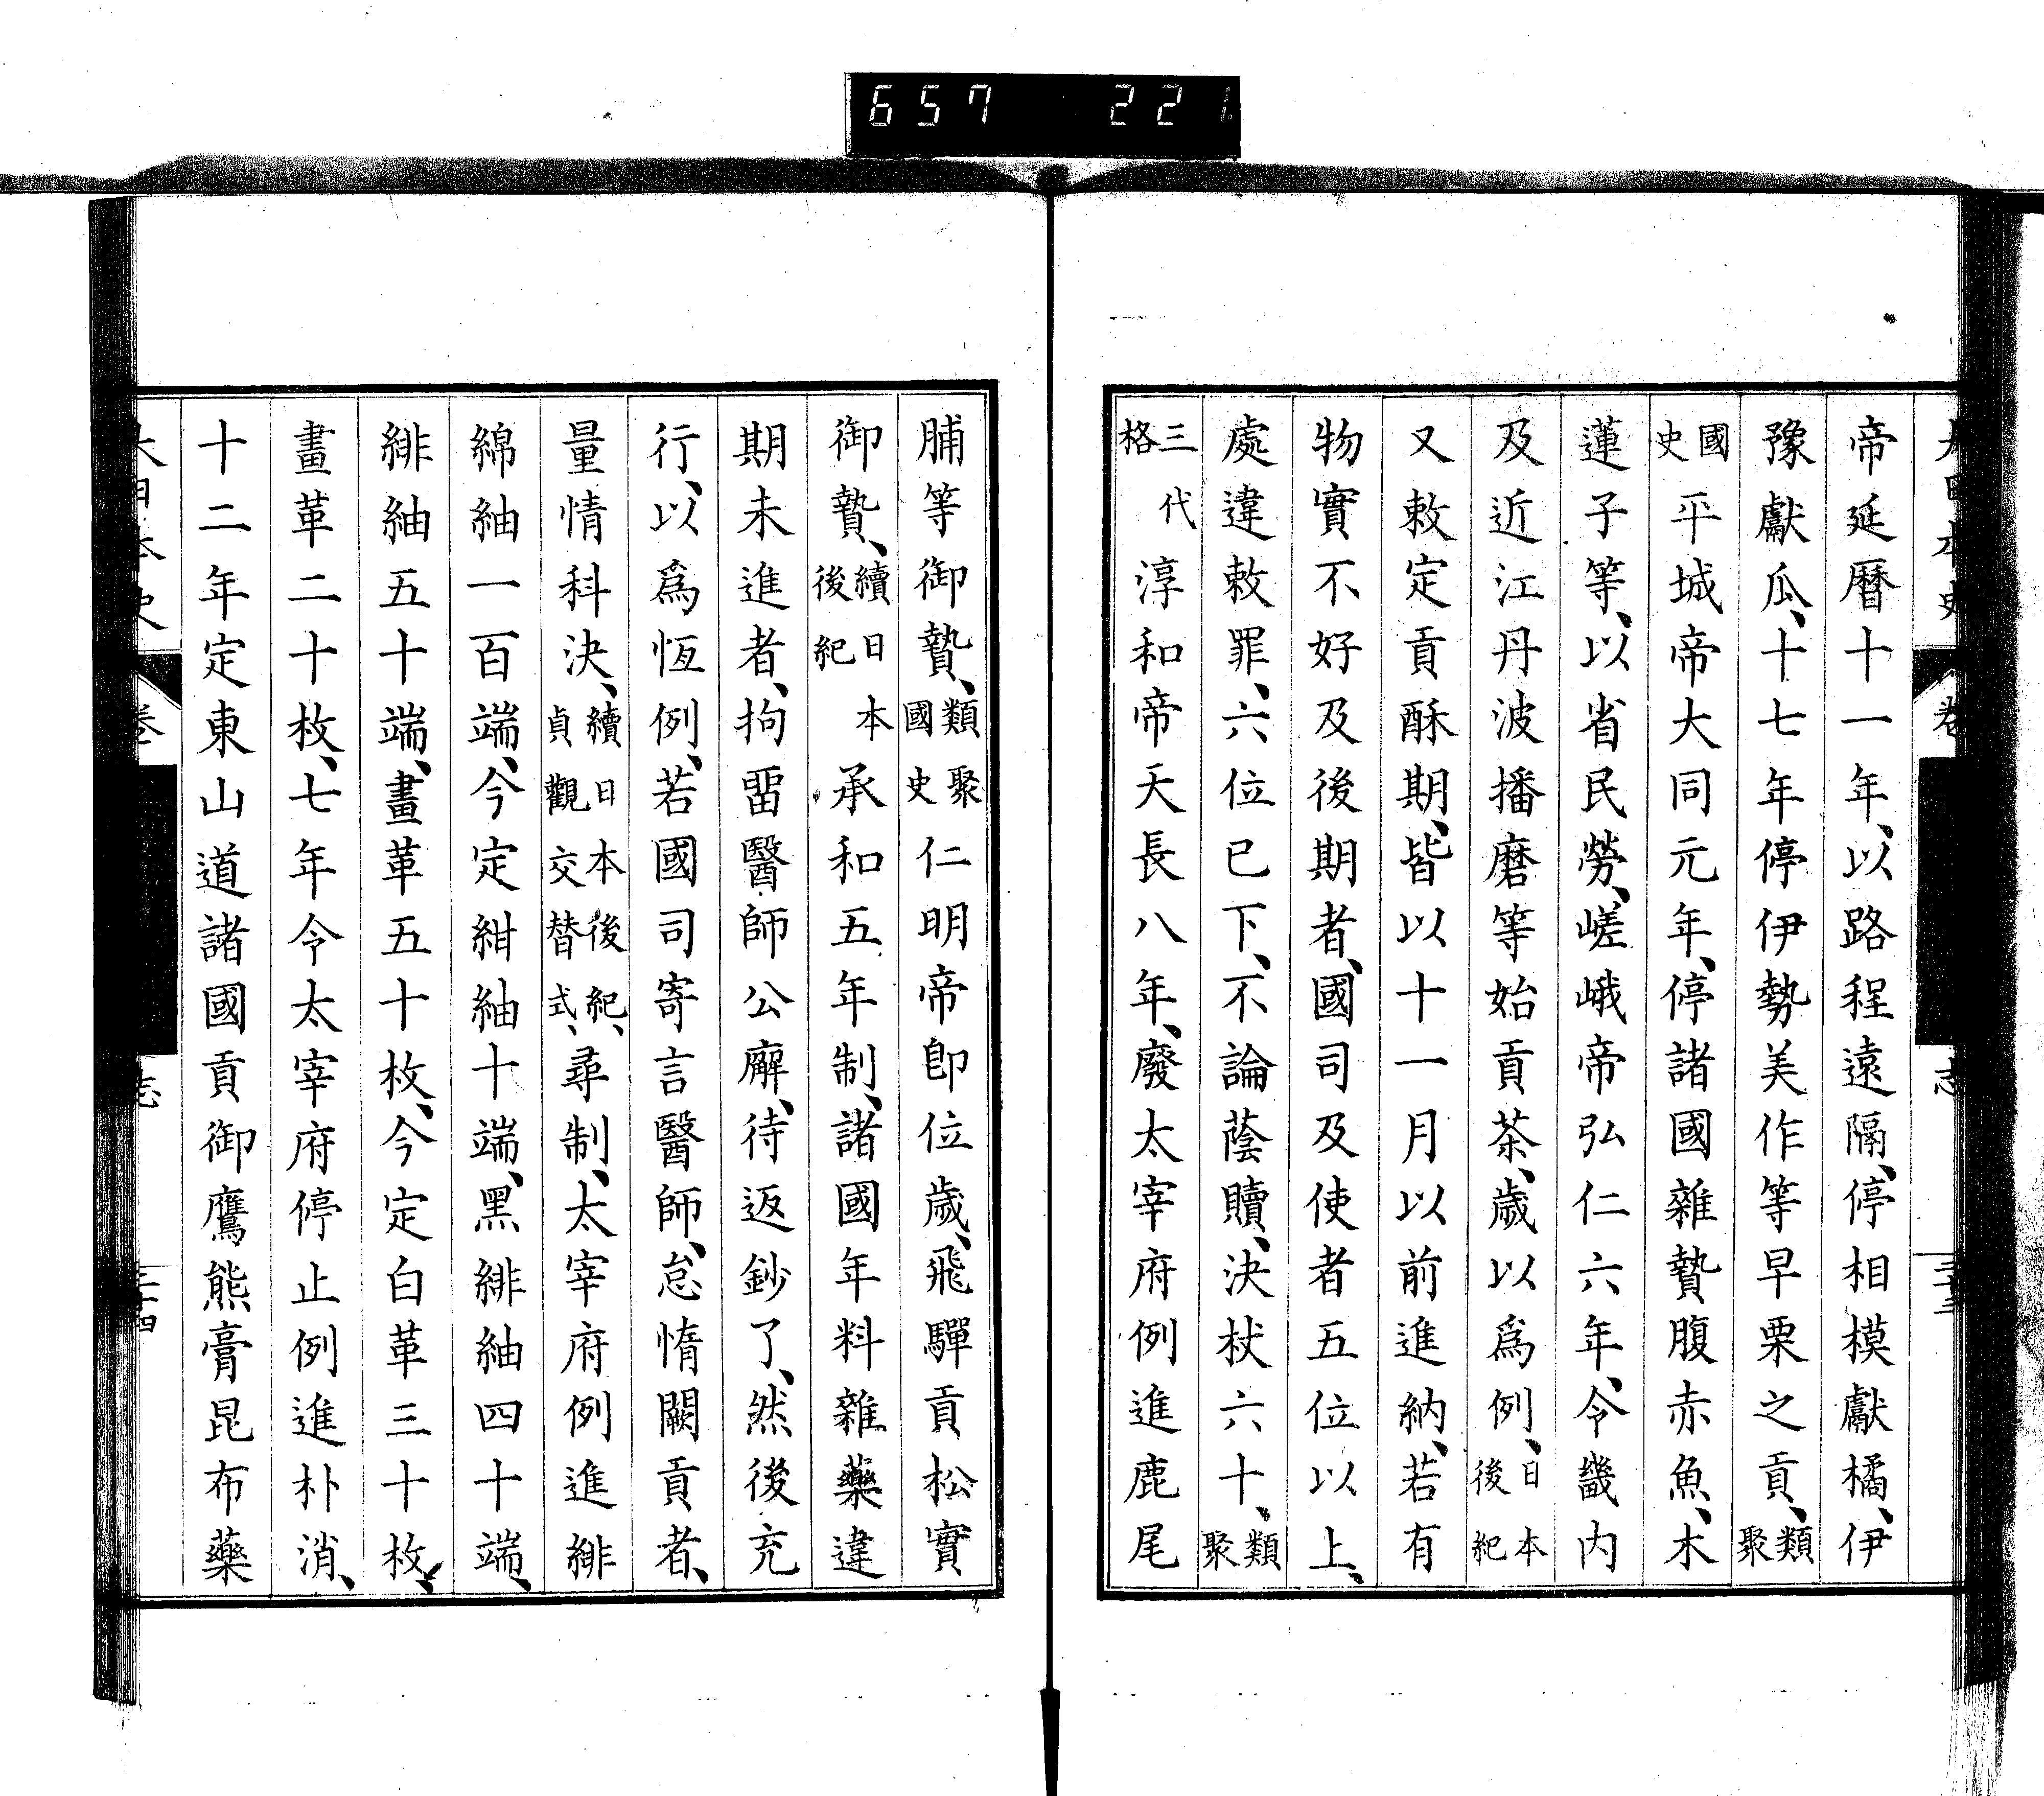 657 221
帝延曆十一年、以路程遠隔、停相模獻橘、伊
豫獻瓜、十七年停伊勢美作等早栗之貢、類聚
國史平城帝大同元年、停諸國雜贄腹赤魚、木
蓮子等、以省民勞、嵯峨帝弘仁六年、令畿內
及近江丹波播磨等始貢茶、歲以爲例、日本後紀
又敕定貢酥期、皆以十一月以前進納、若有
物實不好及後期者、國司及使者五位以上、
處違敕罪、六位已下、不論蔭贖、決杖六十、類聚
三代格淳和帝天長八年、廢太宰府例進鹿尾
脯等御贄、類聚國史仁明帝卽位歲、飛驒貢松實
御贄、續日本後紀承和五年制、諸國年料雜藥違
期未進者、拘留醫師公廨、待返鈔了、然後充
行、以爲恆例、若國司寄言醫師、怠惰闕貢者、
量情科決、續日本後紀、貞觀交替式、尋制、太宰府例進緋
綿紬一百端、今定紺紬十端、黑緋紬四十端、
緋紬五十端、畫革五十枚、今定白革三十枚、
畫革二十枚、七年令太宰府停止例進朴消、
十二年定東山道諸國貢御鷹熊膏昆布藥